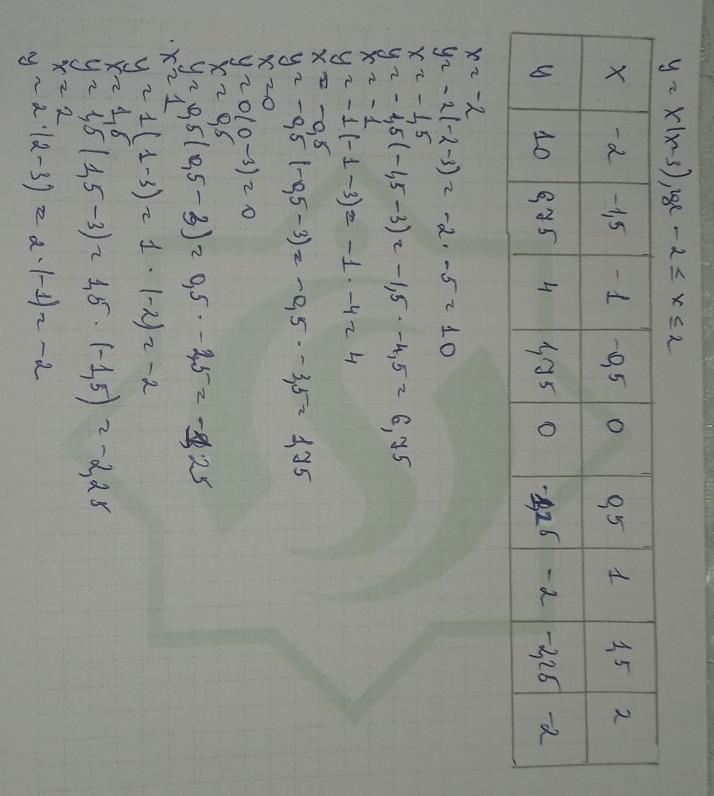 y = x(x-3), где -2 ≤ x ≤ 2
x -2 -1,5 -1 -0,5 0 0,5 1 1,5 2
y 10 6,75 4 1,75 0 -1,25 -2 -2,25 -2
x = -2
y = -2(-2-3) = -2 · -5 = 10
x = -1,5
y = -1,5(-1,5-3) = -1,5 · -4,5 = 6,75
x = -1
y = -1(-1-3) = -1 · -4 = 4
x = -0,5
y = -0,5(-0,5-3) = -0,5 · -3,5 = 1,75
x = 0
y = 0(0-3) = 0
x = 0,5
y = 0,5(0,5-3) = 0,5 · -2,5 = -1,25
x = 1
y = 1(1-3) = 1 · (-2) = -2
x = 1,5
y = 1,5(1,5-3) = 1,5 · (-1,5) = -2,25
x = 2
y = 2 · (2-3) = 2 · (-1) = -2